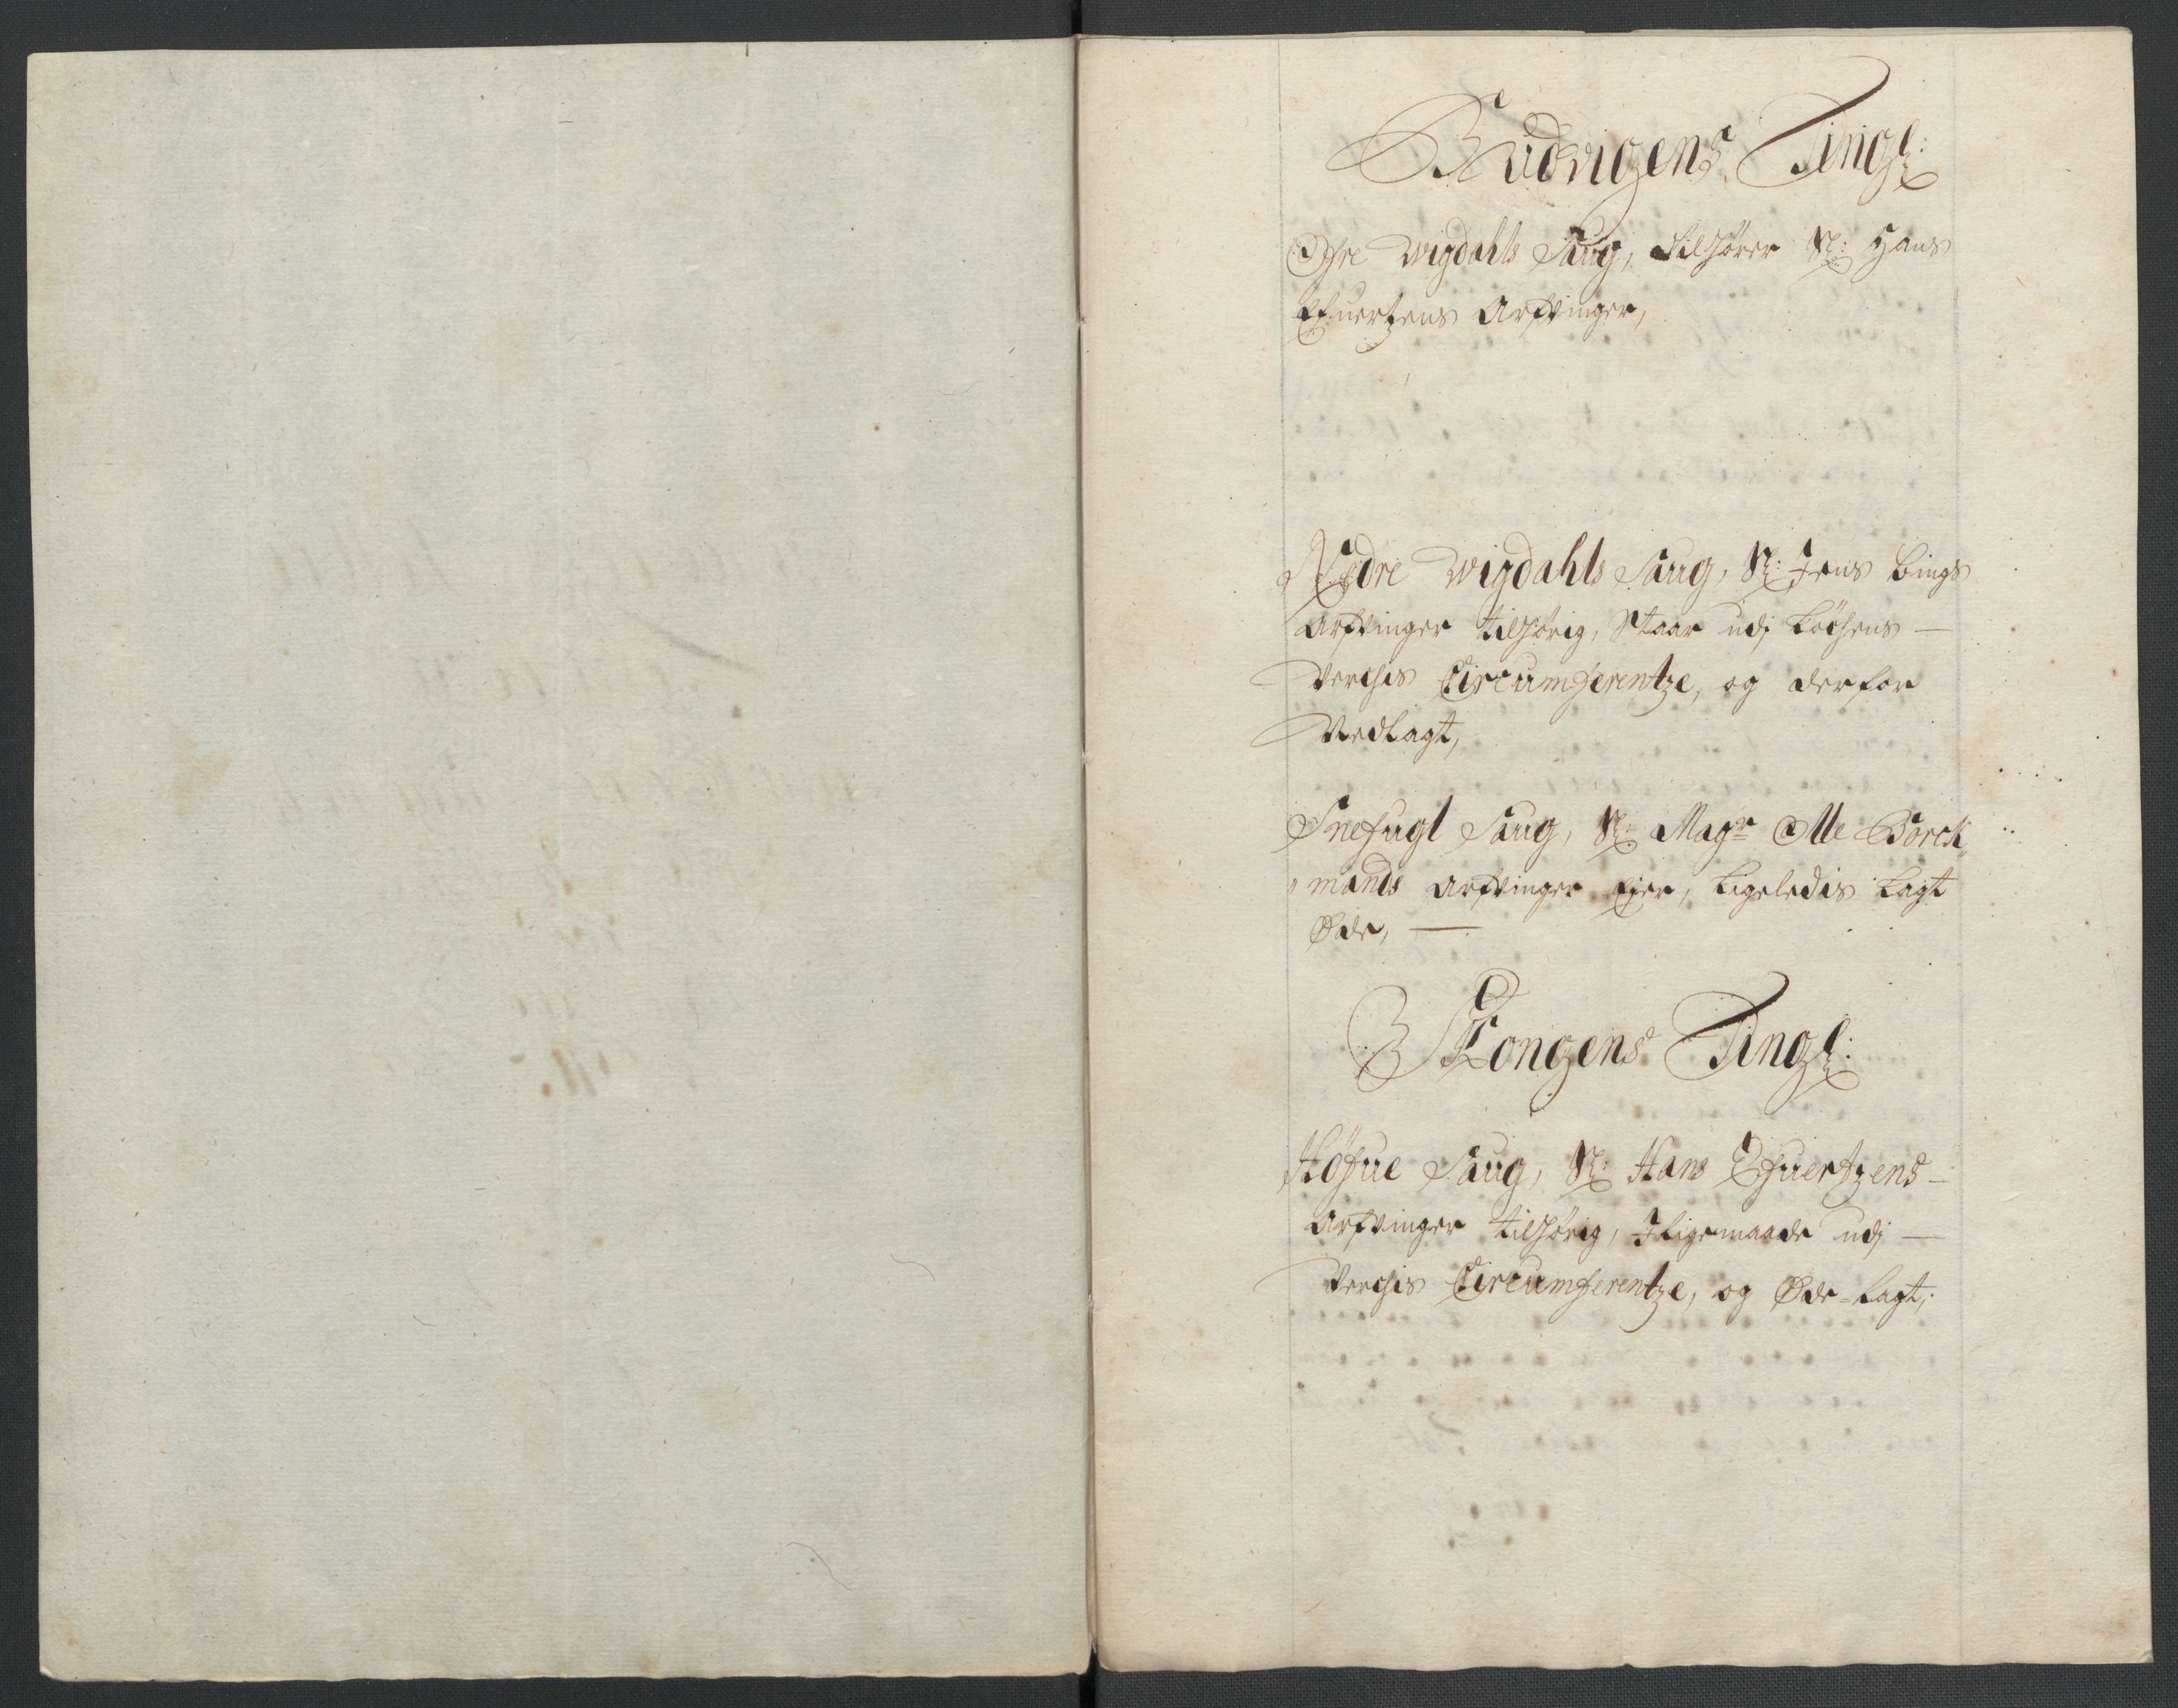 Budvigens Tingl:
Øfre Wigdahls Saug, Tilhörer Sl: Hans
Efuertzens Arfvinger,
Nedre Wigdahls Saug, Sl: Jens Bings
Arfvinger tilhörig, Staar udj Löchens —
Verchis Circumferentze, og derfor
Nedlagt,
Snefugl Saug, Sl: Magr Olle Borck
mands Arfvinger Ejer, ligeledis lagt
Øde, —
Stongens Tingl:
Höfue Saug, Sl: Hans Efuertzens —
Arfvinger tilhörig, I ligemaade udj —
Verchis Circumferentze, og Øde-lagt;